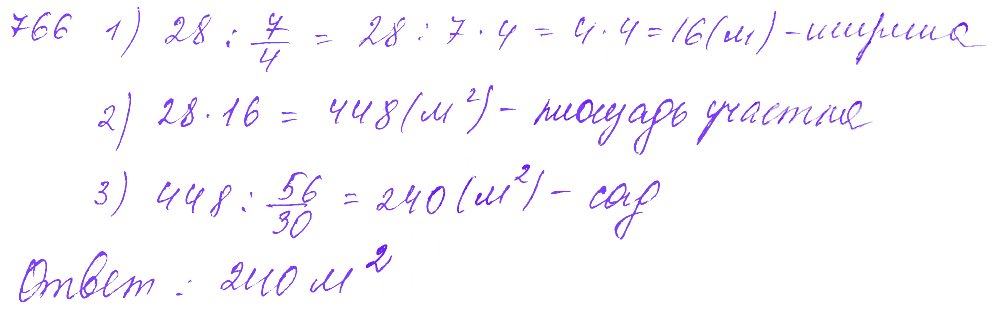 766 1) 28 : 7/4 = 28 : 7 · 4 = 4 · 4 = 16 (м) - ширина
2) 28 · 16 = 448 (м²) - площадь участка
3) 448 : 56/30 = 240 (м²) - сад
Ответ : 240 м²